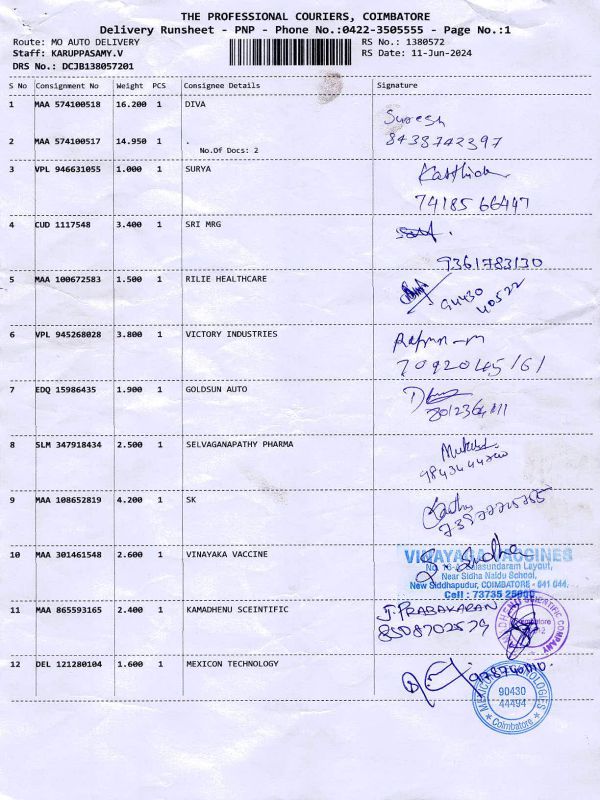 THE PROFESSIONAL COURIERS, COIMBATORE
Delivery Runsheet - PNP - Phone No.:0422-3505555 - Page No.:1
Route: MO AUTO DELIVERY RS No.: 1380572
Staff: KARUPPASAMY.V RS Date: 11-Jun-2024
DRS No.: DCJB138057201
S No Consignment No Weight PCS Consignee Details Signature
1 MAA 574100518 16.200 1 DIVA
Suresh
2 MAA 574100517 14.950 1 . 8438742397
No.Of Docs: 2
3 VPL 946631055 1.000 1 SURYA
74185 66447
4 CUD 1117548 3.400 1 SRI MRG
9361783130
5 MAA 100672583 1.500 1 RILIE HEALTHCARE
94430
40522
6 VPL 945268028 3.800 1 VICTORY INDUSTRIES
7092045161
7 EDQ 15986435 1.900 1 GOLDSUN AUTO
8 SLM 347918434 2.500 1 SELVAGANAPATHY PHARMA
9 MAA 108652819 4.200 1 SK
10 MAA 301461548 2.600 1 VINAYAKA VACCINE
VINAYAGA VACCINES
Balasundaram Layout,
Near Sidha Naidu School,
New Siddhapudur, COIMBATORE - 641 044.
Cell : 73735
11 MAA 865593165 2.400 1 KAMADHENU SCEINTIFIC
J. PRABAKARAN
8508702579
SCIENTIFIC COMPANY
12 DEL 121280104 1.600 1 MEXICON TECHNOLOGY
MEXICON TECHNOLOGIES
90430
44494
Coimbatore